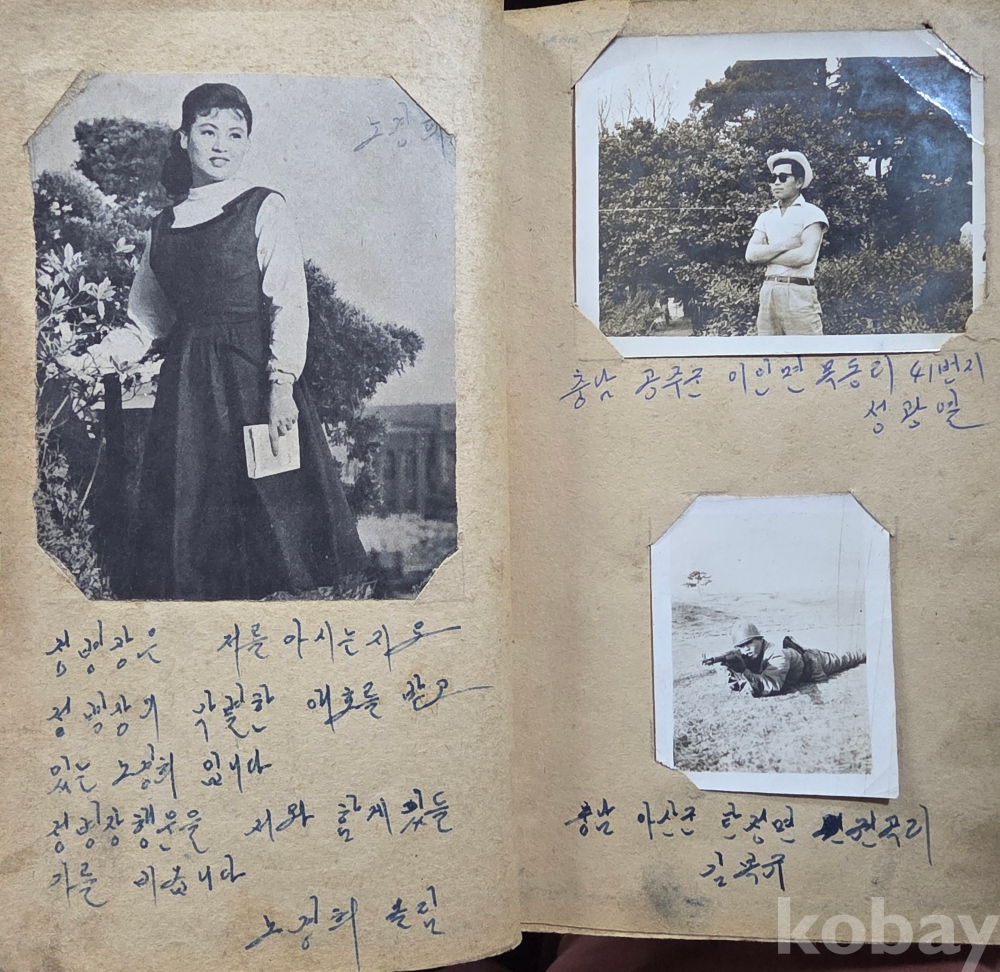 노경희
정병장은 저를 아시는지요
정병장의 각별한 애호를 받고
있는 노경희 입니다
정병장 행운을 저와 함께 있들
기를 비옵니다
노경희 올림
충남 공주군 이인면 목동리 41번지
성광열
충남 아산군 탕정면 권곡리
김목규
kobay